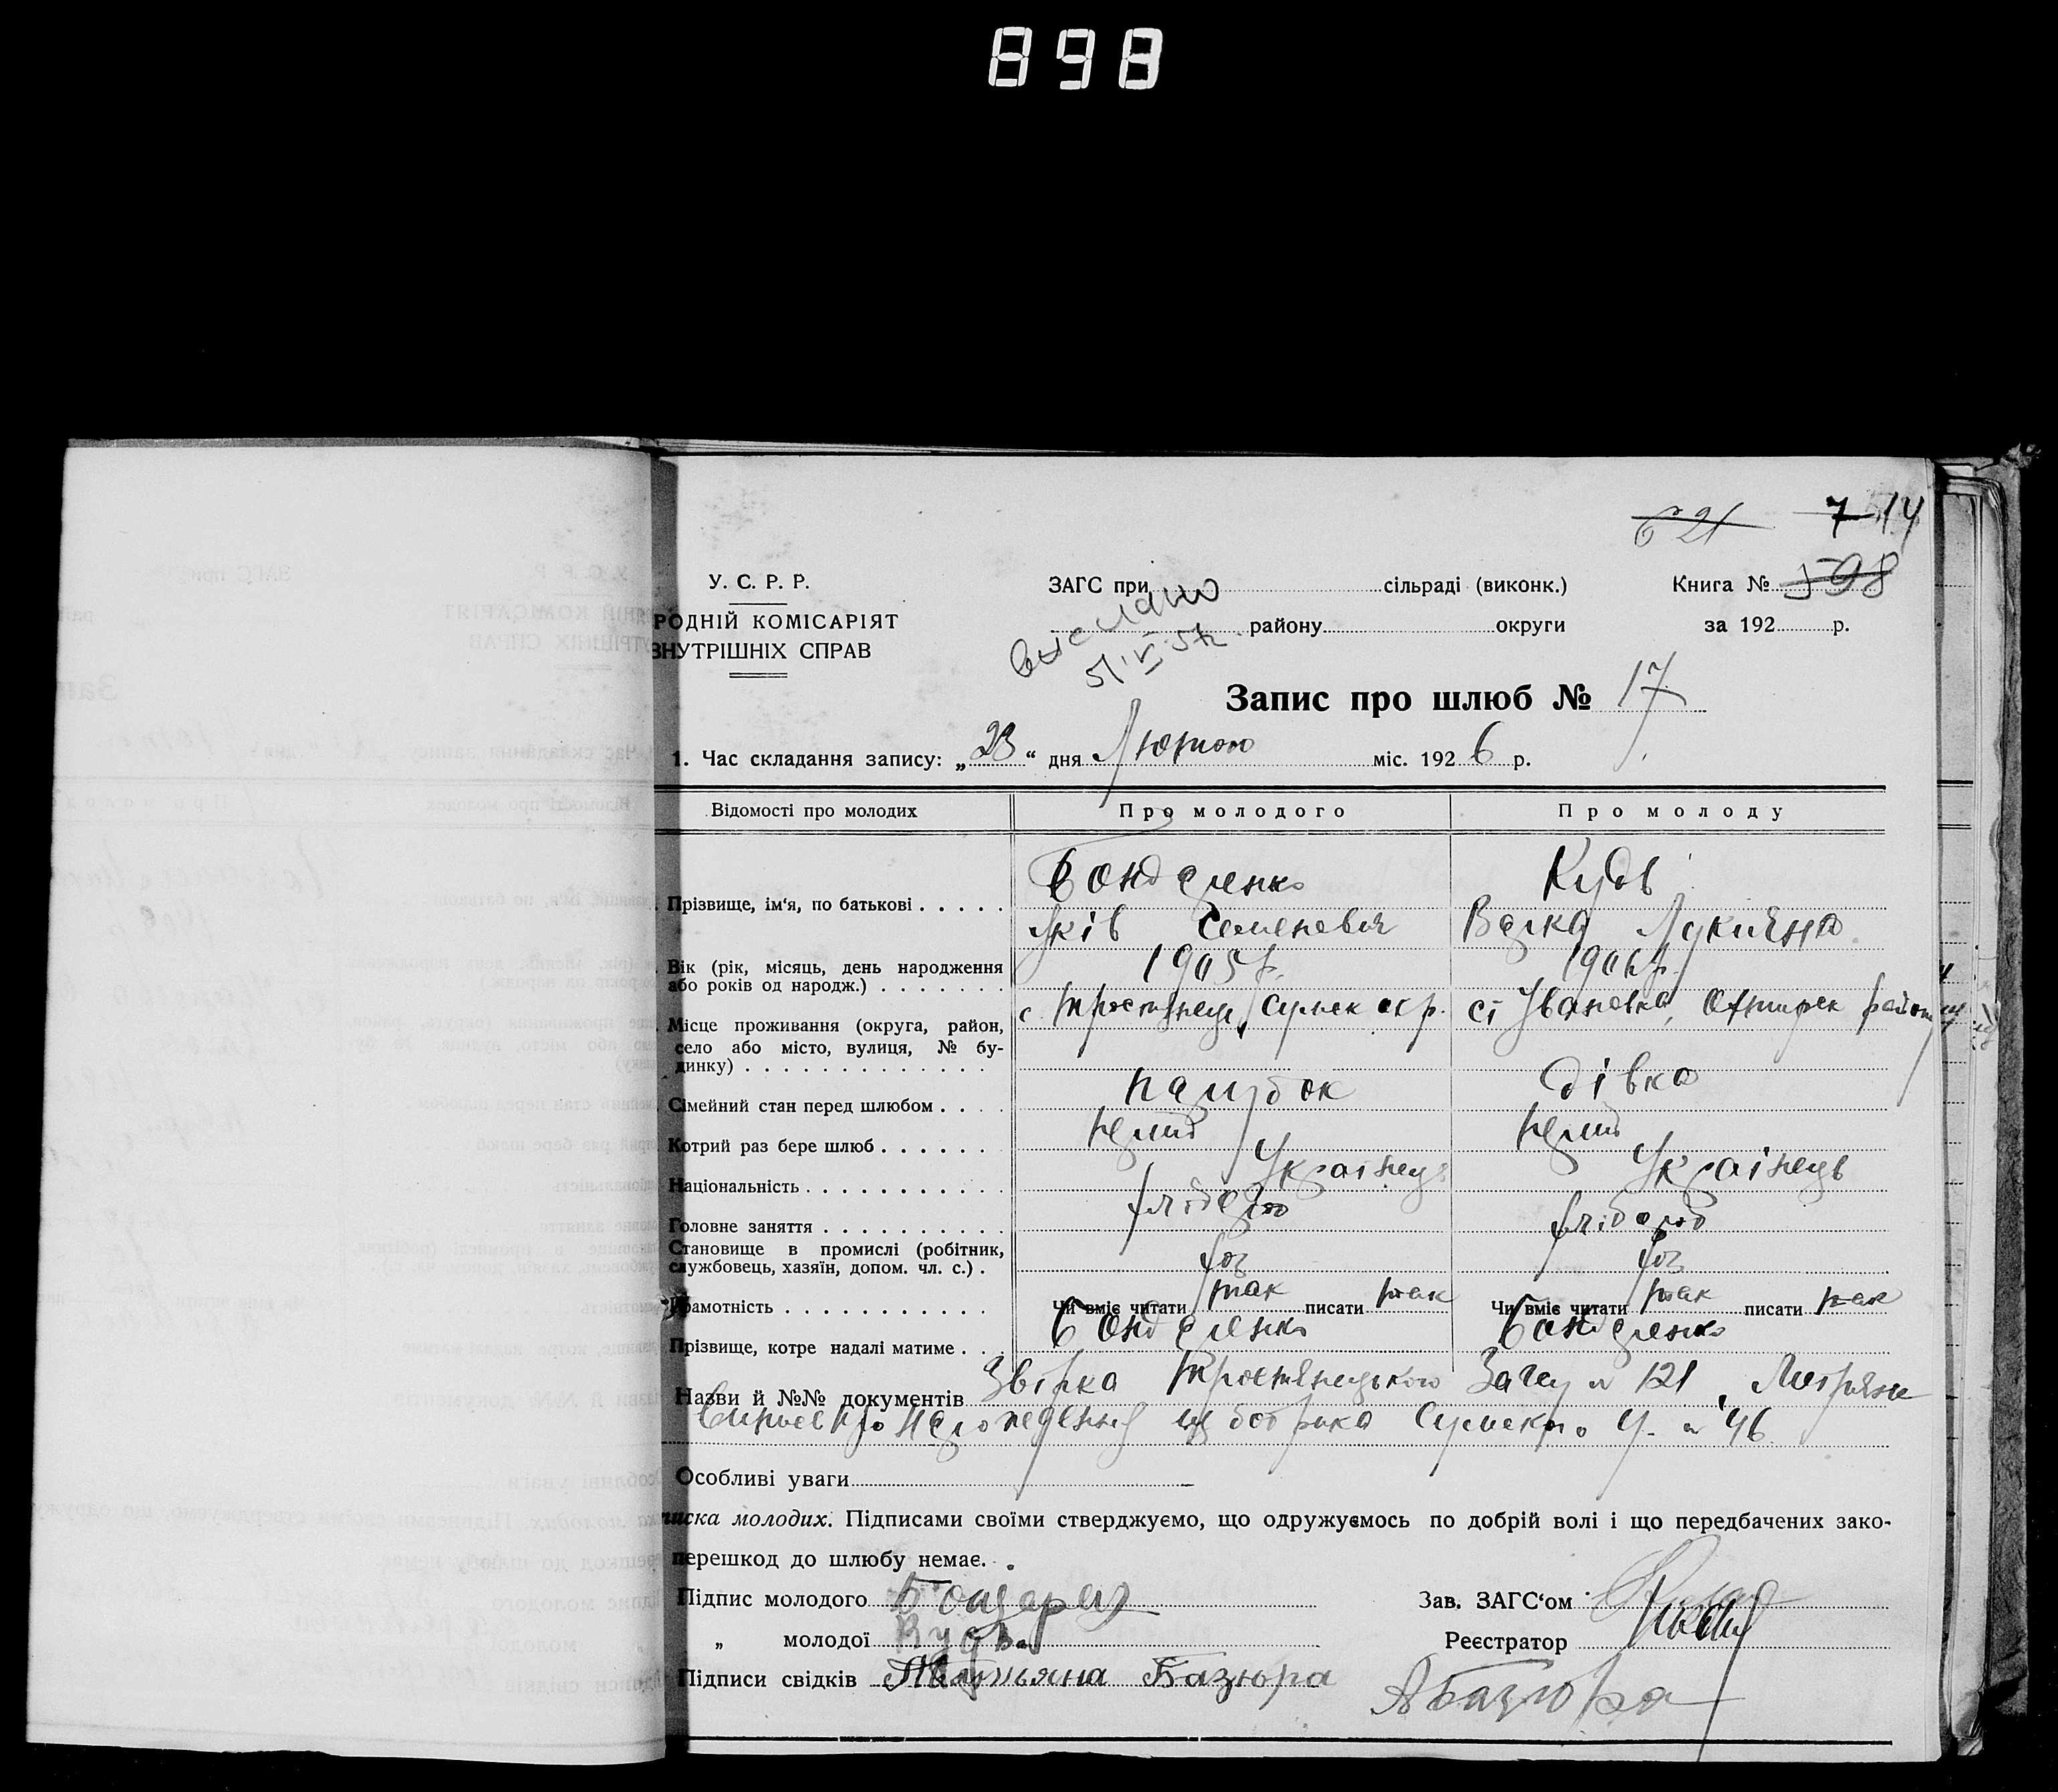 898
621 7 14
У. С. Р. Р.
РОДНІЙ КОМІСАРІЯТ
ВНУТРІШНІХ СПРАВ
ЗАГС при сільраді (виконк.)
району округи
Книга № 598
за 192 р.
вислано
Запис про шлюб № 17
1. Час складання запису: „23“ дня Лютого міс. 1926 р.
Відомості про молодих Про молодого Про молоду
Прізвище, ім'я, по батькові . . . . . Бондаренко
Яків Семенович Лукияна
Вік (рік, місяць, день народження 1905 р. 1906 р.
або років од народж.) . . . . . . .
Місце проживання (округа, район, с. Тростянець, Сумск окр. Івановка, Охтирск район
село або місто, вулиця, № бу-
динку) . . . . . . . . . . . . .
Сімейний стан перед шлюбом . . . . парубок дівка
Котрий раз бере шлюб . . . . . . перший перший
Національність . . . . . . . . . . . Українець Українець
Головне заняття . . . . . . . . . . хлібороб хлібороб
Становище в промислі (робітник, хоз хоз
службовець, хазяїн, допом. чл. с.) .
Грамотність . . . . . . . . . . . Чи вміє читати так писати так Чи вміє читати так писати так
Прізвище, котре надалі матиме . . . Бондаренко Бондаренко
Назви й №№ документів Звірка Тростянецького Загсу № 121, Метричн
Виписъ про народження № 46
Особливі уваги
писка молодих. Підписами своїми стверджуємо, що одружуємось по добрій волі і що передбачених зако-
перешкод до шлюбу немає.
Підпис молодого
Зав. ЗАГС'ом
„ молодої
Реєстратор
Підписи свідків Татьяна Базюра
АБазюра